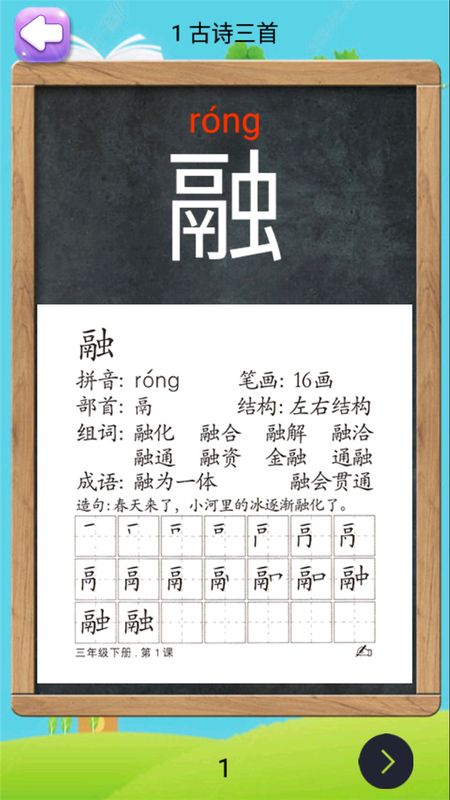 1 古诗三首
róng
融
融
拼音: róng 笔画: 16画
部首: 鬲 结构: 左右结构
组词: 融化 融合 融解 融洽
融通 融资 金融 通融
成语: 融为一体 融会贯通
造句: 春天来了，小河里的冰逐渐融化了。
三年级下册 . 第 1 课
1